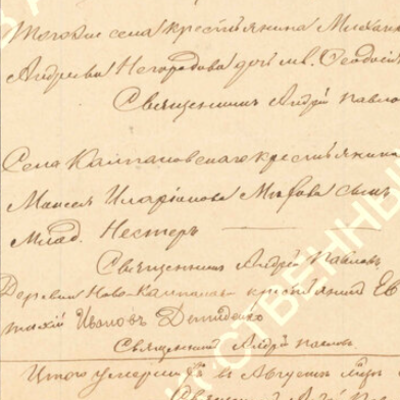 Тогоже села крестьянина Михаи
Андреева Негородова дочь мл. Феодосі
Священникъ Андрей Павло
Села Кампановскаго крестьянина
Моисея Иларіонова сынъ
Млад. Нестеръ
Священникъ Андрей Павловъ
Деревни Ново-Кампан крестьянин Ев
тихій Ивановъ Демиденко
Священник Андрей Павлов
Итого умерш въ Августѣ
Священник Андрей Па
СТВЕННЫ